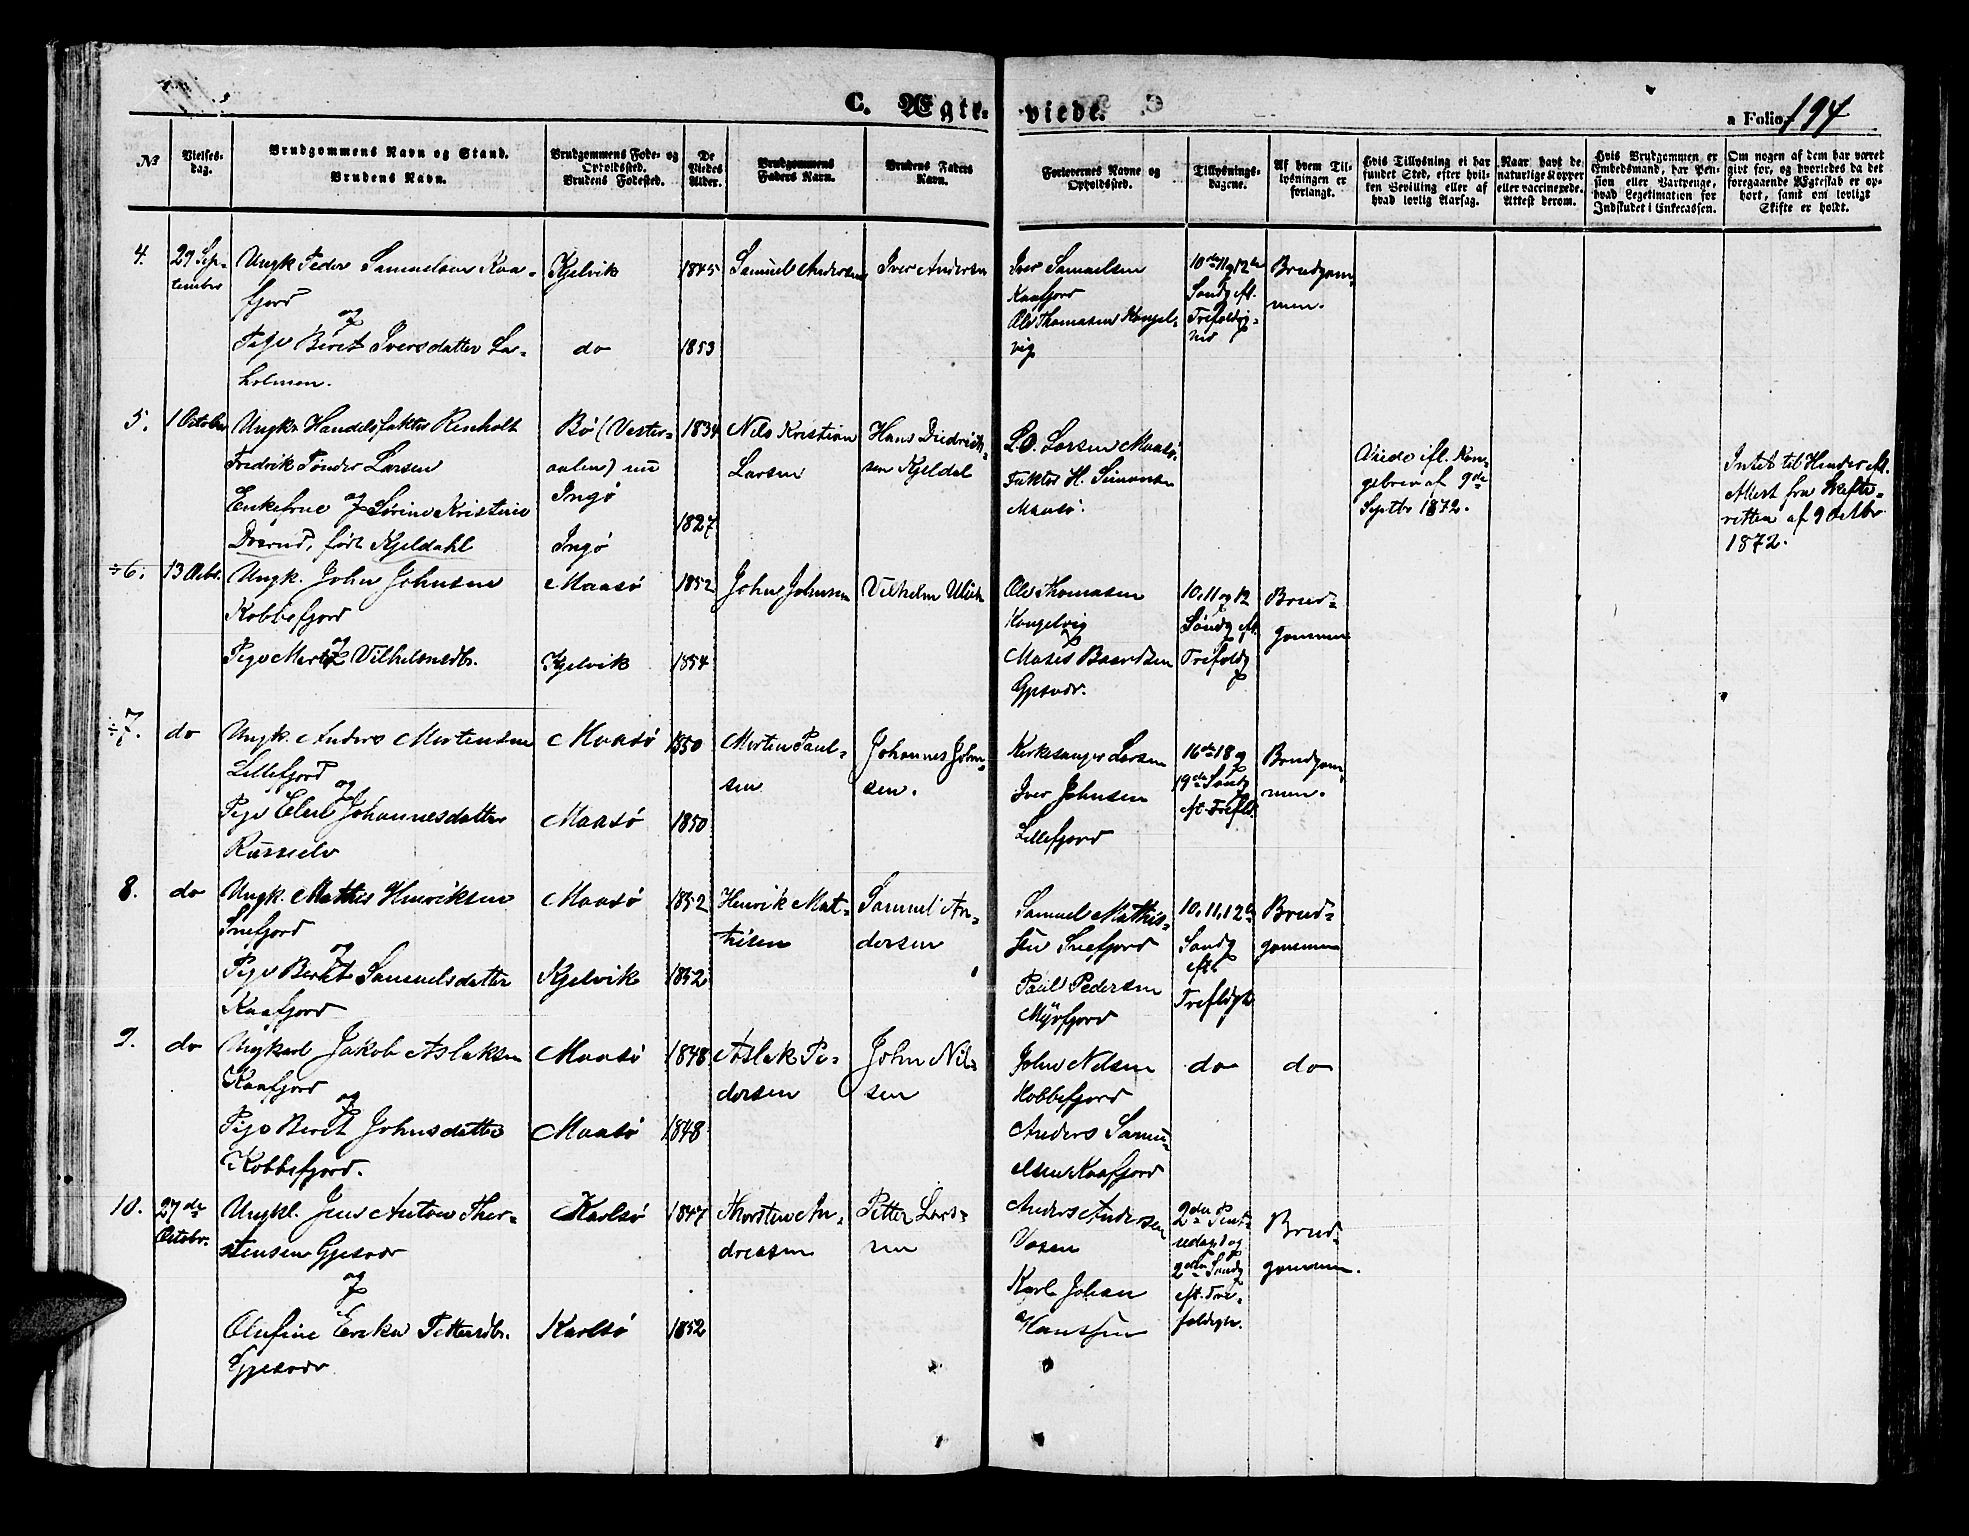 C. Ægte-viede.
a Folio 194
No
Vielses-dag.
Brudgommens Navn og Stand.
Brudens Navn.
Brudgommens Føde- og Opholdssted.
Brudens Fødested.
De Viedes Alder.
Brudgommens Faders Navn.
Brudens Faders Navn.
Forlovernes Navne og Opholdssted.
Tillysnings-dagene.
Af hvem Tillysningen er forlangt.
Hvis Tillysning ei har fundet Sted, efter hvilken Bevilling eller af hvad lovlig Aarsag.
Naar havt de naturlige Kopper eller vaccinerede. Attest derom.
Hvis Brudgommen er Embedsmand, har Pension eller Vartpenge, hvad Legitimation for Indskudet i Enkecassen.
Om nogen af dem har været givt før, og hvorledes da det foregaaende Ægteskab er ophørt, samt om lovligt Skifte er holdt.
4.
29 Sep-
tember
Ungk Peder Samuelsen Kaa-
fjord
og
Pige Beret Iversdatter La-
holmen.
Kjelvik
do
1845
1853
Samuel Andersen
Iver Andersen
Iver Samuelsen
Kaafjord
Ole Thomasen Kongel-
vig
10de 11 og 12te
Søndg eft.
Trefoldig-
hed
Brudgom-
men.
5.
1 October
Ungkr Handelsfaktor Renholt
Fredrik Tønder Larsen
og
Enkefrue Sørine Kristine
Dverud, født Kjeldahl
Bø (Vester-
aalen) nu
Ingø
Ingø
1834
1827
Nils Kristian
Larsen
Hans Diedrik-
sen Kjeldal
L.O. Larsen Maasø.
Faktor H. Simonsen
Maasø.
Viede efl. Kon-
gebrev af 9de
Septbr 1872.
Intet til Hinder eft.
Attest fra Skifte-
retten af 9 Octbr
1872.
÷6.
13 Octbr.
Ungk. John Johnsen
Kobbefjord
og
Pige Vilhelmsdtr.
Maasø
Kjelvik
1852
1854
John Johnsen
Vilhelm
Ole Thomasen
Kongelvig
Moses Baardsen
Gjesvær.
10, 11 og 12
Søndg eft.
Trefoldg
Brud-
gommen
÷7.
do
Ungk. Anders Mortensen
Lillefjord
og
Pige Elen Johannesdatter
Russelv
Maasø
Maasø
1850
1850
Morten Paul-
sen
Johannes John-
sen.
Kirkesanger Larsen
Iver Johnsen
Lillefjord
16de 18 og
19de Søndg
eft. Trefld.
Brudgom-
men.
8.
do
Ungk. Mathis Henriksen
Snefjord
og
Pige Beret Samuelsdatter
Kaafjord
Maasø
Kjelvik
1852
1852
Henrik Mat-
hisen
Samuel An-
dersen
Samuel Mathis-
sen Snefjord
Paul Pedersen
Myrfjord
10, 11, 12te
Søndg
eft
Trefldgh
Brud-
gommen
9.
do
Ungkarl Jakob Aslaksen
Kaafjord
og
Pige Beret Johnsdatter
Kobbefjord.
Maasø
Maasø
1848
1848
Aslak Pe-
dersen
John Nil-
sen
John Nilsen
Kobbefjord
Anders Samu-
elsen Kaafjord
do
do
10.
27de
Octobr.
Ungkl. Jens Anton Thor-
stensen Gjesvær
og
Olufine Erika Pettersdtr.
Gjesvær
Karlsø
Karlsø
1847
1852
Thorsten An-
dreassen
Petter Lars-
sen
Anders Andersen
Karl Johan
Hanssen
2den Pint-
sedag og
2den Søndg
eft. Tre-
foldigh.
Brud-
gommen.